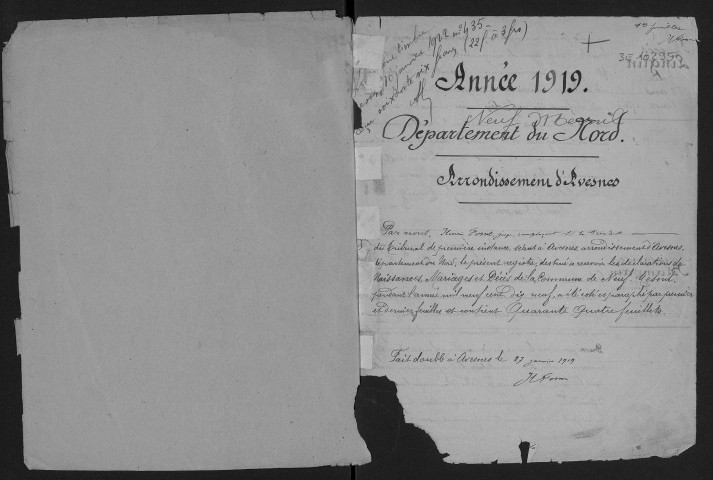 timbre
janvier 1922 no 435
soixante six francs (22 f à 3 frs)
1er feuillet
Année 1919.
Neuf Mesnil
Département du Nord.
Arrondissement d'Avesnes
Par nous, juge
du Tribunal de première instance, séant à Avesnes arrondissement d'Avesnes,
Département du Nord, le présent registre, destiné à recevoir les déclarations de
Naissances, Mariages et Décès de la Commune de Neuf-Mesnil
pendant l'année mil neuf cent dix neuf, a été coté et paraphé par premier
et dernier feuillet et contient Quarante Quatre feuillets.
Fait double à Avesnes le 27 janvier 1919